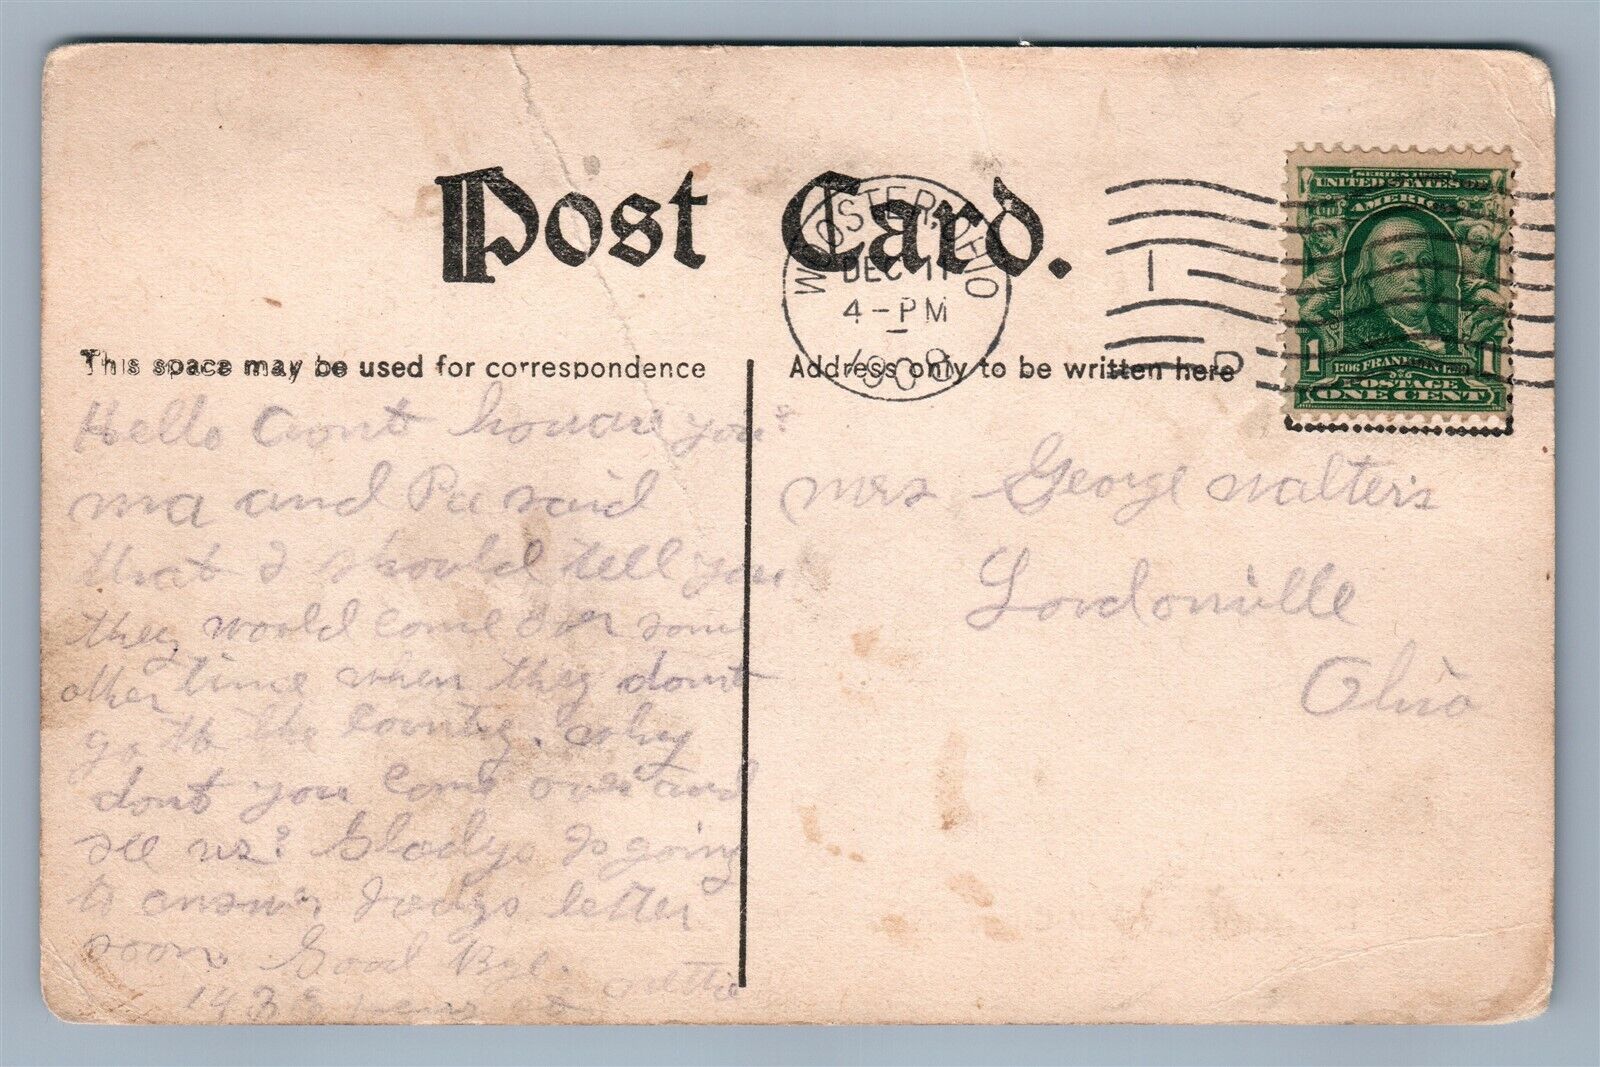 Post Card.
WOOSTER, OHIO
DEC 11
4-PM
1908
1
D
SERIES 1902
UNITED STATES
AMERICA
1 1706 FRANKLIN 1790 1
POSTAGE
ONE CENT
This space may be used for correspondence
Address only to be written here
Hello Aunt how are you?
ma and Pa said
that I should tell you
they would come over some
other time when they dont
go to the country. why
dont you come over and
see us? Gladys Is going
to answer letter
soon. Good Bye.
Nettie
mrs George Walters
Loudonville
Ohio